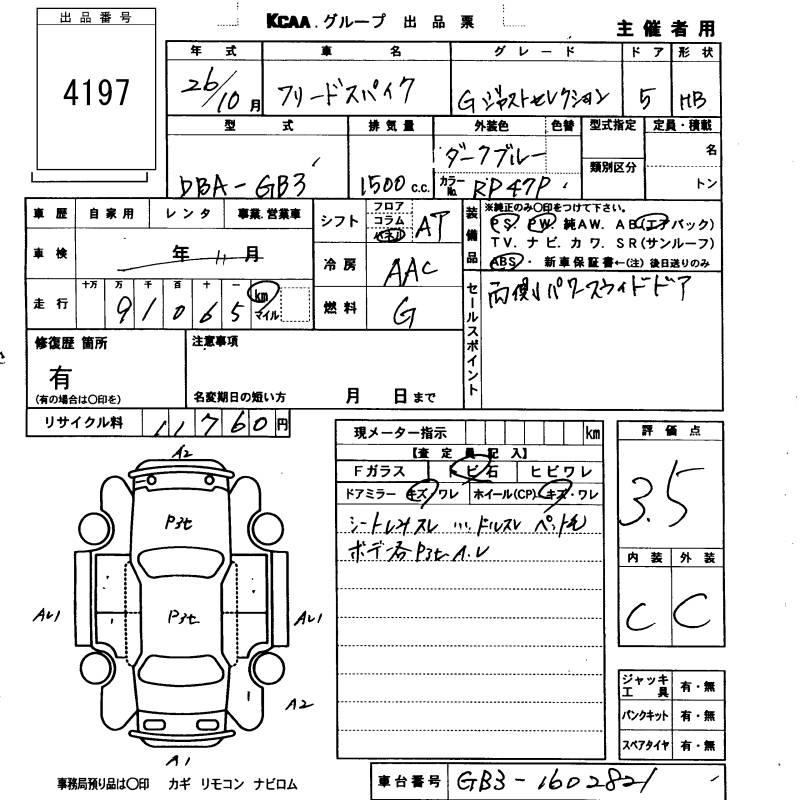 出品番号
4197
KCAA.グループ 出品票
主催者用
年式 車名 グレード ドア 形状
26/10月 フリードスパイク Gジャストセレクション 5 HB
型式 排気量 外装色 色替 型式指定 定員・積載
DBA-GB3 1500 c.c. ダークブルー 類別区分 名
カラーNo. RP47P トン
車歴 自家用 レンタ 事業.営業車
車検 年 11月
走行 十万 万 千 百 十 一
91065 km マイル
シフト フロア コラム パネル AT
冷房 AAC
燃料 G
装備品
※純正のみ○印をつけて下さい。
PS. PW. 純AW. AB(エアバック)
TV. ナビ. カワ. SR(サンルーフ)
ABS・ 新車保証書←(注)後日送りのみ
セールスポイント
両側パワースライドドア
修復歴 箇所
有
(有の場合は○印を)
注意事項
名変期日の短い方 月 日まで
リサイクル料 11760円
現メーター指示 km
【査定員記入】
Fガラス トビ石 ヒビワレ
ドアミラー キズ・ワレ ホイール(CP) キズ・ワレ
シートしみスレ 内ドルスレ ペット毛
ボデー各P3セ A.U
評価点
3.5
内装 外装
C C
A2
P3セ
P3セ
AU1
AU1
A2
A1
ジャッキ工具 有・無
パンクキット 有・無
スペアタイヤ 有・無
事務局預り品は○印 カギ リモコン ナビロム
車台番号 GB3-1602821